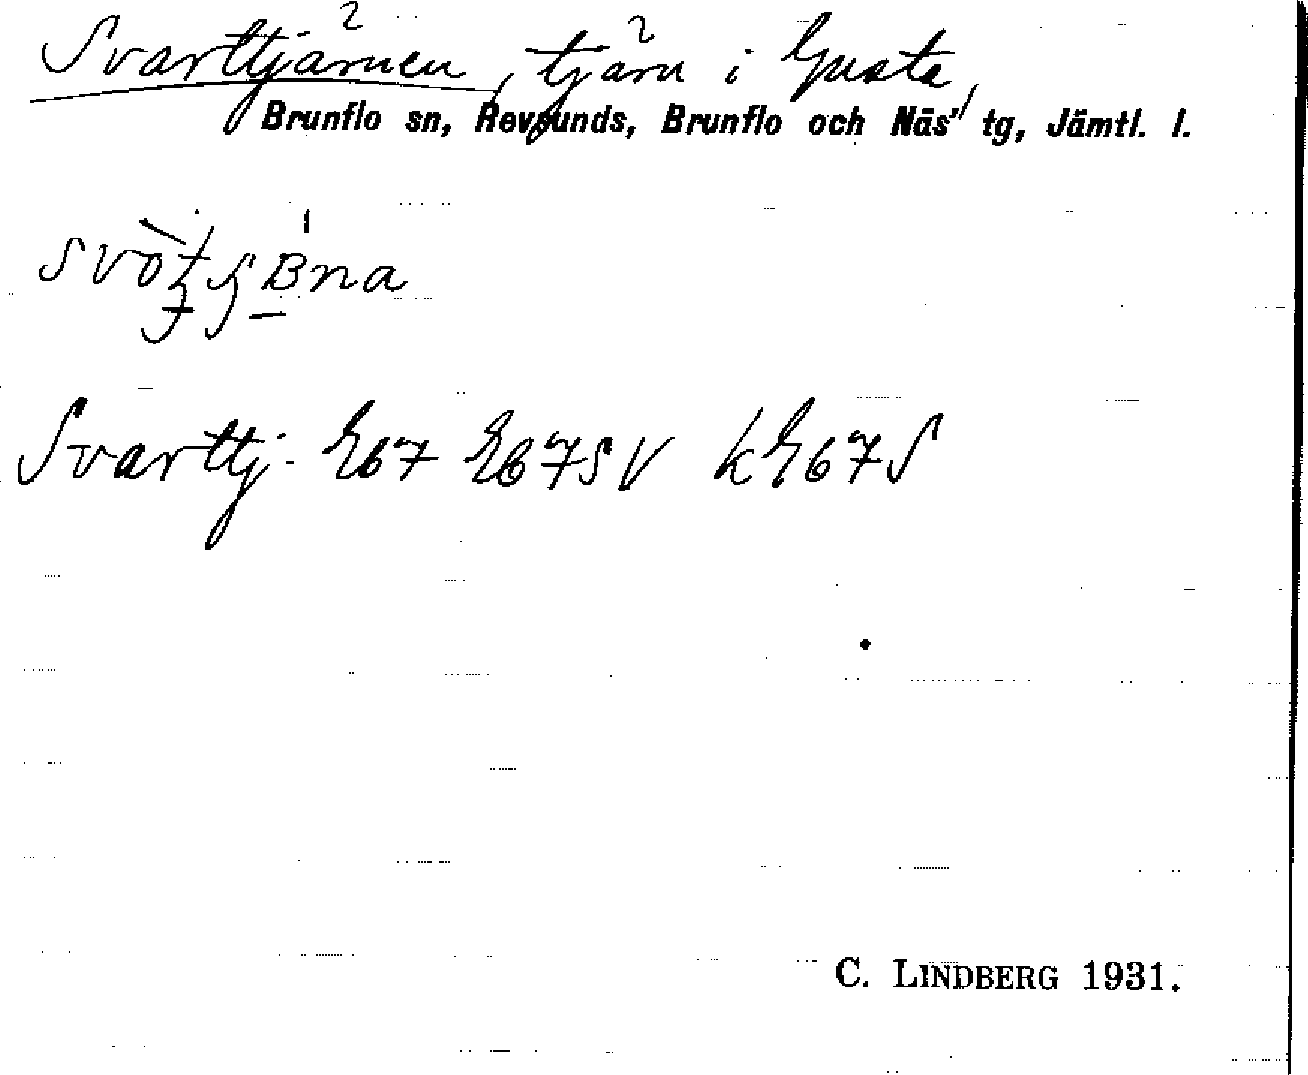 Svarttjärnen, tjärn i Gusta,
Brunflo sn, Revsunds, Brunflo och Näs' tg, Jämtl. l.
Svarttj. E67 E67SV kE67S
C. LINDBERG 1931.